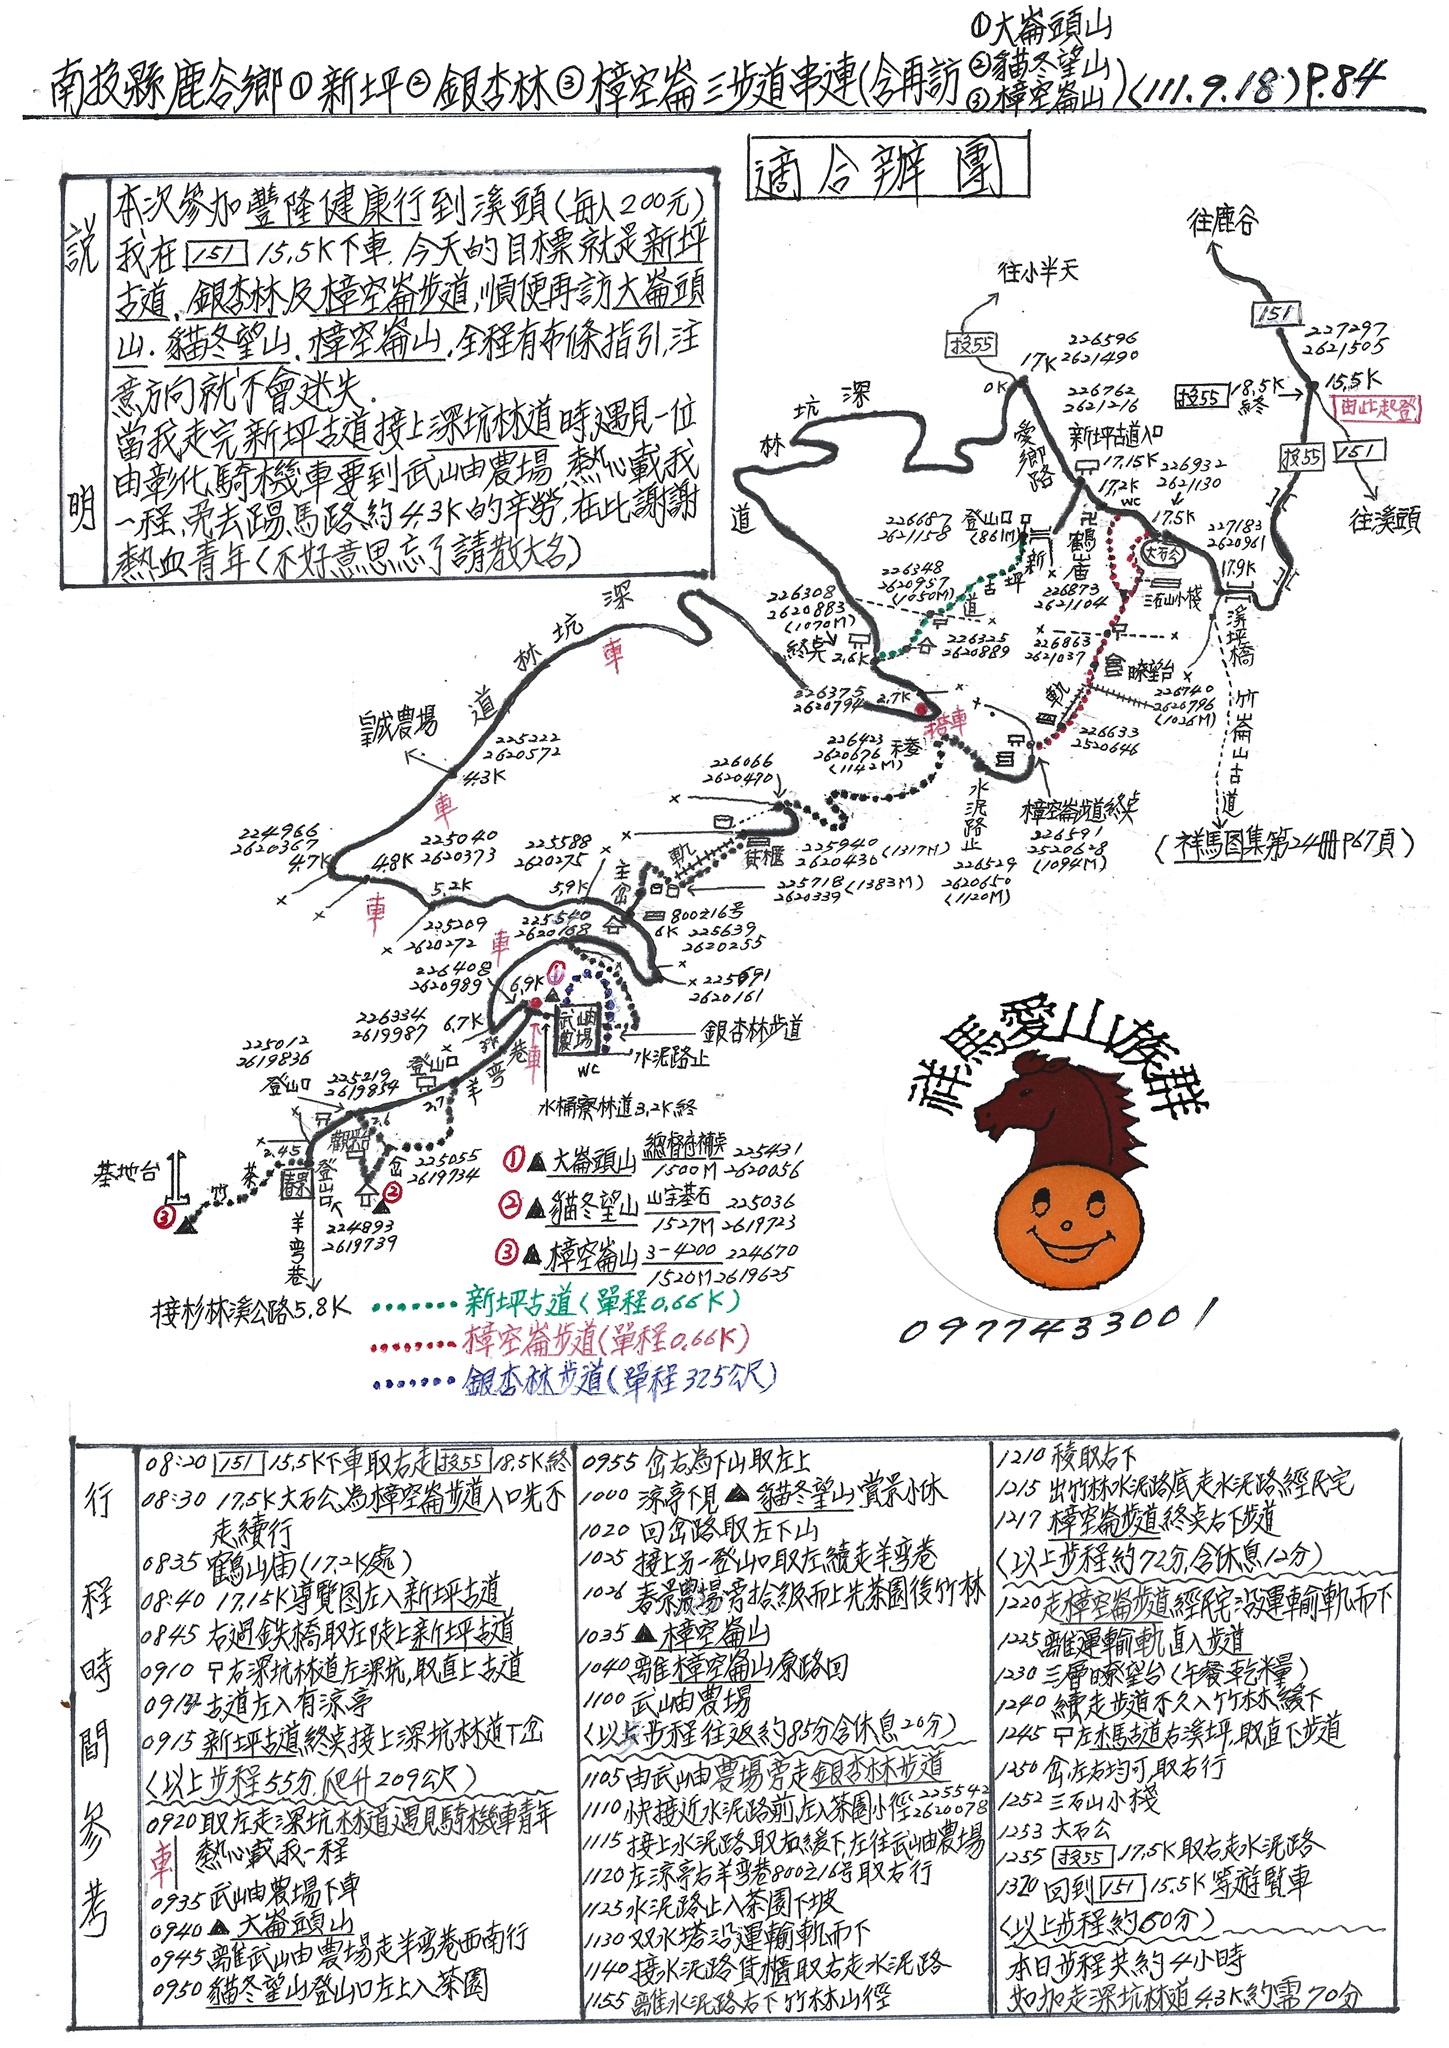 南投縣鹿谷鄉①新坪②銀杏林③樟空崙三步道串連(含再訪①大崙頭山②貓冬望山③樟空崙山)(111.9.18)P.84
適合辦團
說明
本次參加豐隆健康行到溪頭(每人200元)
我在151 15.5K下車.今天的目標就是新坪
古道、銀杏林及樟空崙步道,順便再訪大崙頭
山、貓冬望山、樟空崙山.全程有布條指引,注
意方向就不會迷失.
當我走完新坪古道接上深坑林道時,遇見一位
由彰化騎機車要到武岫農場,熱心載我
一程、免去踢馬路約4.3K的辛勞,在此謝謝
熱血青年(不好意思忘了請教大名)
往鹿谷
往小半天
151
投55
0K
17K
226596
2621490
227297
2621505
投55 18.5K終
15.5K
由此起登
投55
151
往溪頭
226762
2621216
新坪古道入口
17.15K
17.2K
WC
226932
2621130
17.5K
大石公
愛鄉路
深坑林道
226687
2621158
登山口
(861M)
新坪古道
鶴山廟
227183
2620961
17.9K
溪坪橋
三石山小棧
竹崙山古道
(祥馬图集第24冊P67頁)
226348
2620957
(1050M)
226308
2620883
(1070M)
終點
2.6K
226325
2620889
226873
2621104
226863
2621037
瞭望台
軌
226740
2620796
(1026M)
226633
2520646
226375
2620794
2.7K
搭車
226423
2620676
(1142M)
稜
水泥路止
樟空崙步道終點
226591
2520628
(1094M)
226529
2620650
(1120M)
226066
2620470
貨櫃
225940
2620430(1317M)
225718(1383M)
2620339
軌
深坑林道
車
皇誠農場
225222
2620572
4.3K
車
224966
2620367
4.7K
4.8K
225040
2620373
225588
2620275
車
5.2K
5.9K
225209
2620272
225540
2620168
800之16号
6K
225639
2620255
車
226408
2620989
6.9K
①
225691
2620161
226334
2619987
6.7K
武岫農場
WC
銀杏林步道
水泥路止
下車
羊弯巷
3K
水桶寮林道3.2K終
225012
2619836
登山口
225219
2619854
登山口
2.7
2.6
2.45
觀景台
岔
225055
2619734
②
基地台
③
竹
茶
春景
登山口
224893
2619739
羊弯巷
接杉林溪公路5.8K
①▲大崙頭山 總督府補點 1500M 225431 2620056
②▲貓冬望山 山字基石 1527M 225036 2619723
③▲樟空崙山 3-4200 1520M 224670 2619625
新坪古道(單程0.66K)
樟空崙步道(單程0.66K)
銀杏林步道(單程325公尺)
祥馬愛山族群
0977433001
行程時間參考
08:20 151 15.5K下車取右走投55 18.5K終
08:30 17.5K大石公為樟空崙步道入口先不
走續行
0835 鶴山廟(17.2K處)
08:40 17.15K導覽图左入新坪古道
0845 右過鉄橋取左陡上新坪古道
0910 右深坑林道左深坑,取直上古道
0914 古道左入有涼亭
0915 新坪古道終點接上深坑林道丁岔
(以上步程55分.爬升209公尺)
0920 取左走深坑林道遇見騎機車青年
車 熱心載我一程
0935 武岫農場下車
0940 ▲大崙頭山
0945 離武岫農場走羊弯巷西南行
0950 貓冬望山登山口左上入茶園
0955 岔右為下山取左上
1000 涼亭下見▲貓冬望山賞景小休
1020 回岔路取左下山
1025 接上另一登山口取左續走羊弯巷
1026 春景農場旁拾級而上先茶園後竹林
1035 ▲樟空崙山
1040 離樟空崙山原路回
1100 武岫農場
(以上步程往返約85分含休息20分)
1105 由武岫農場旁走銀杏林步道
1110 快接近水泥路前,左入茶園小徑 225542 2620078
1115 接上水泥路取右緩下,左往武岫農場
1120 左涼亭右羊弯巷800之16号取右行
1125 水泥路止入茶園下坡
1130 双水塔沿運輸軌而下
1140 接水泥路貨櫃取右走水泥路
1155 離水泥路右下竹林山徑
1210 稜取右下
1215 出竹林水泥路底走水泥路經民宅
1217 樟空崙步道終點右下步道
(以上步程約72分,含休息12分)
1220 走樟空崙步道經民宅沿運輸軌而下
1225 離運輸軌直入步道
1230 三層瞭望台(午餐:乾糧)
1240 續走步道不久入竹林緩下
1245 左木馬古道右溪坪,取直下步道
1250 岔左右均可,取右行
1252 三石山小棧
1253 大石公
1255 投55 17.5K取右走水泥路
1320 回到151 15.5K等遊覽車
(以上步程約60分)
本日步程共約4小時
如加走深坑林道4.3K約需70分